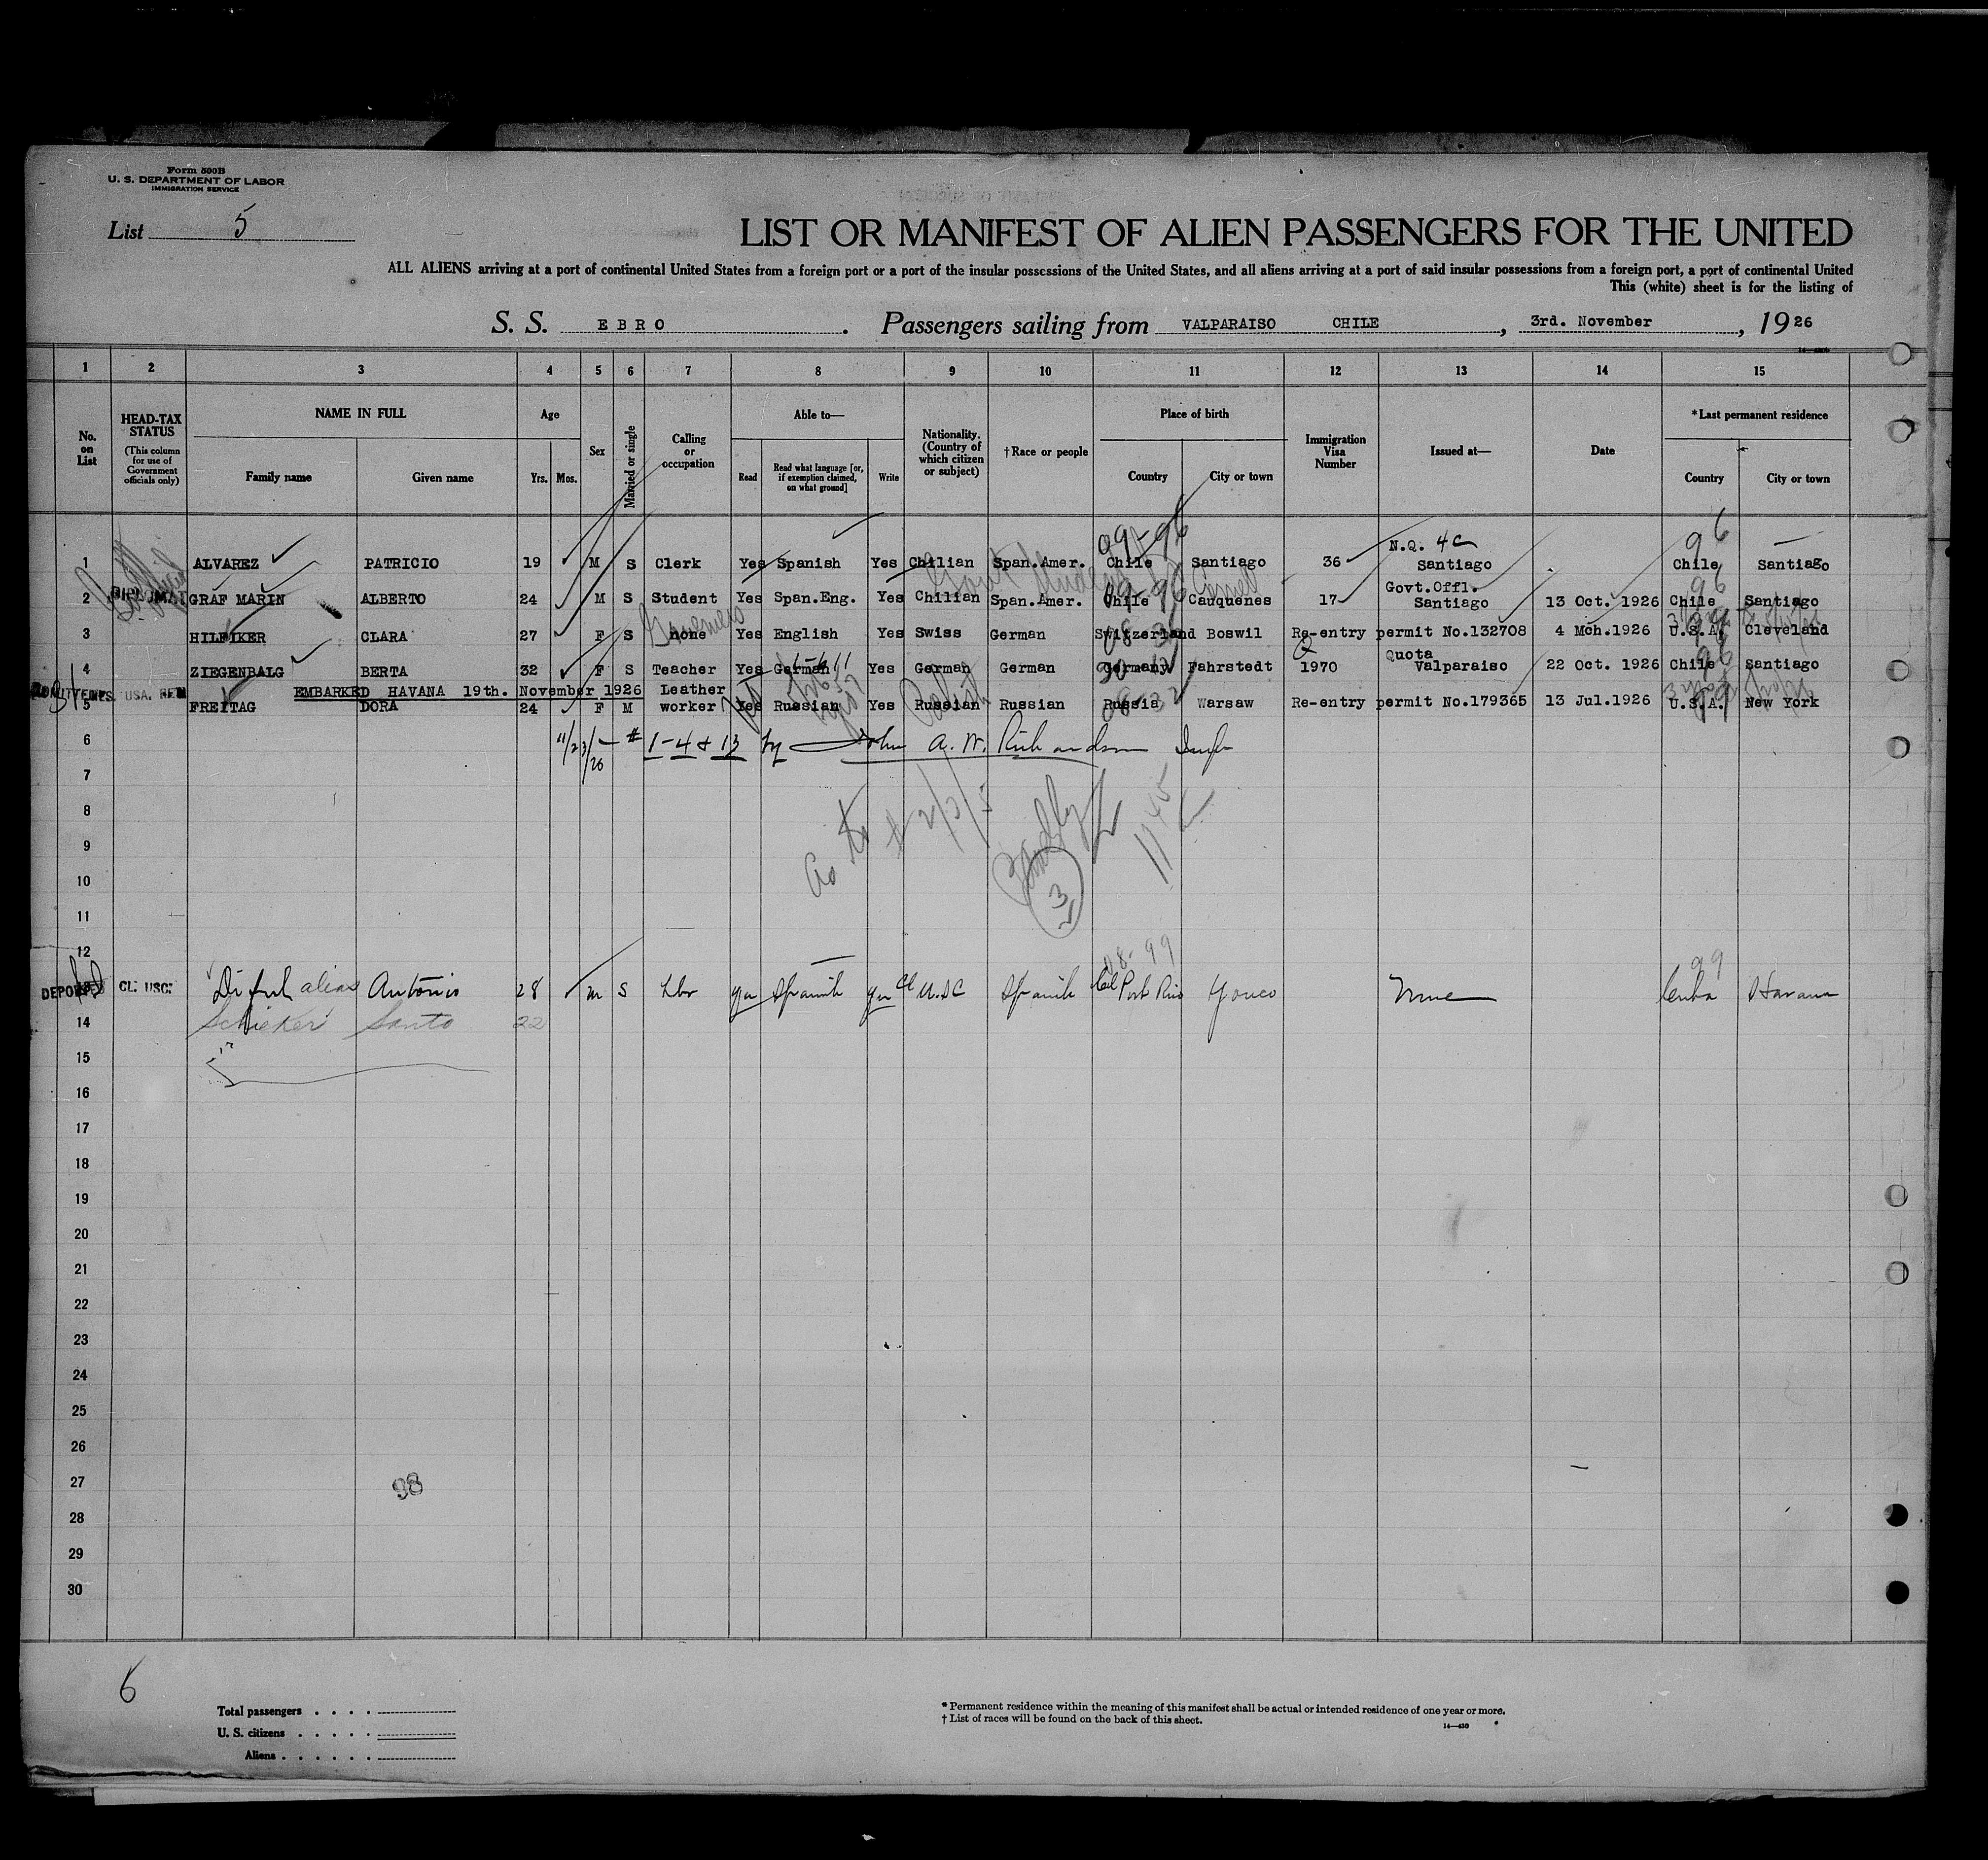 Form 500B
U. S. DEPARTMENT OF LABOR
IMMIGRATION SERVICE
List 5
LIST OR MANIFEST OF ALIEN PASSENGERS FOR THE UNITED
ALL ALIENS arriving at a port of continental United States from a foreign port or a port of the insular possessions of the United States, and all aliens arriving at a port of said insular possessions from a foreign port, a port of continental United
This (white) sheet is for the listing of
S. S. EBRO. Passengers sailing from VALPARAISO CHILE, 3rd. November, 1926
1 2 3 4 5 6 7 8 9 10 11 12 13 14 15
No. on List
HEAD-TAX STATUS (This column for use of Government officials only)
NAME IN FULL Family name Given name
Age Yrs. Mos.
Sex
Married or single
Calling or occupation
Able to— Read Read what language [or, if exemption claimed, on what ground] Write
Nationality. (Country of which citizen or subject)
†Race or people
Place of birth Country City or town
Immigration Visa Number
Issued at—
Date
*Last permanent residence Country City or town
09-96 N.Q. 4C 96
1 ALVAREZ PATRICIO 19 M S Clerk Yes Spanish Yes Chilian Span.Amer. Chile Santiago 36 Santiago Chile Santiago
Govt.Offl.
2 DIPLOMAT GRAF MARIN ALBERTO 24 M S Student Yes Span.Eng. Yes Chilian Span.Amer. Chile Cauquenes 17 Santiago 13 Oct. 1926 Chile Santiago
3 HILFIKER CLARA 27 F S none Yes English Yes Swiss German Switzerland Boswil Re-entry permit No.132708 4 Mch.1926 U.S.A. Cleveland
Quota
4 ZIEGENBALG BERTA 32 F S Teacher Yes German Yes German German Germany Fahrstedt 1970 Valparaiso 22 Oct. 1926 Chile Santiago
EMBARKED HAVANA 19th. November 1926
5 FREITAG DORA 24 F M Leather worker Yes Russian Yes Russian Russian Russia Warsaw Re-entry permit No.179365 13 Jul.1926 U.S.A. New York
6 11/23/26 # 1-4 & 13 by John A. W. Richardson Insp
7
8
9
10
11
12
08-99 99
DEPORTED CL: USC: alias Antonio 28 M S Lbr Yes Spanish Yes Cl U.S.C Spanish Porto Rico Yauco None Cuba Havana
14 Schieker Santo 22
15
16
17
18
19
20
21
22
23
24
25
26
27
98
28
29
30
6
Total passengers
U. S. citizens
Aliens
* Permanent residence within the meaning of this manifest shall be actual or intended residence of one year or more.
† List of races will be found on the back of this sheet.
14—430